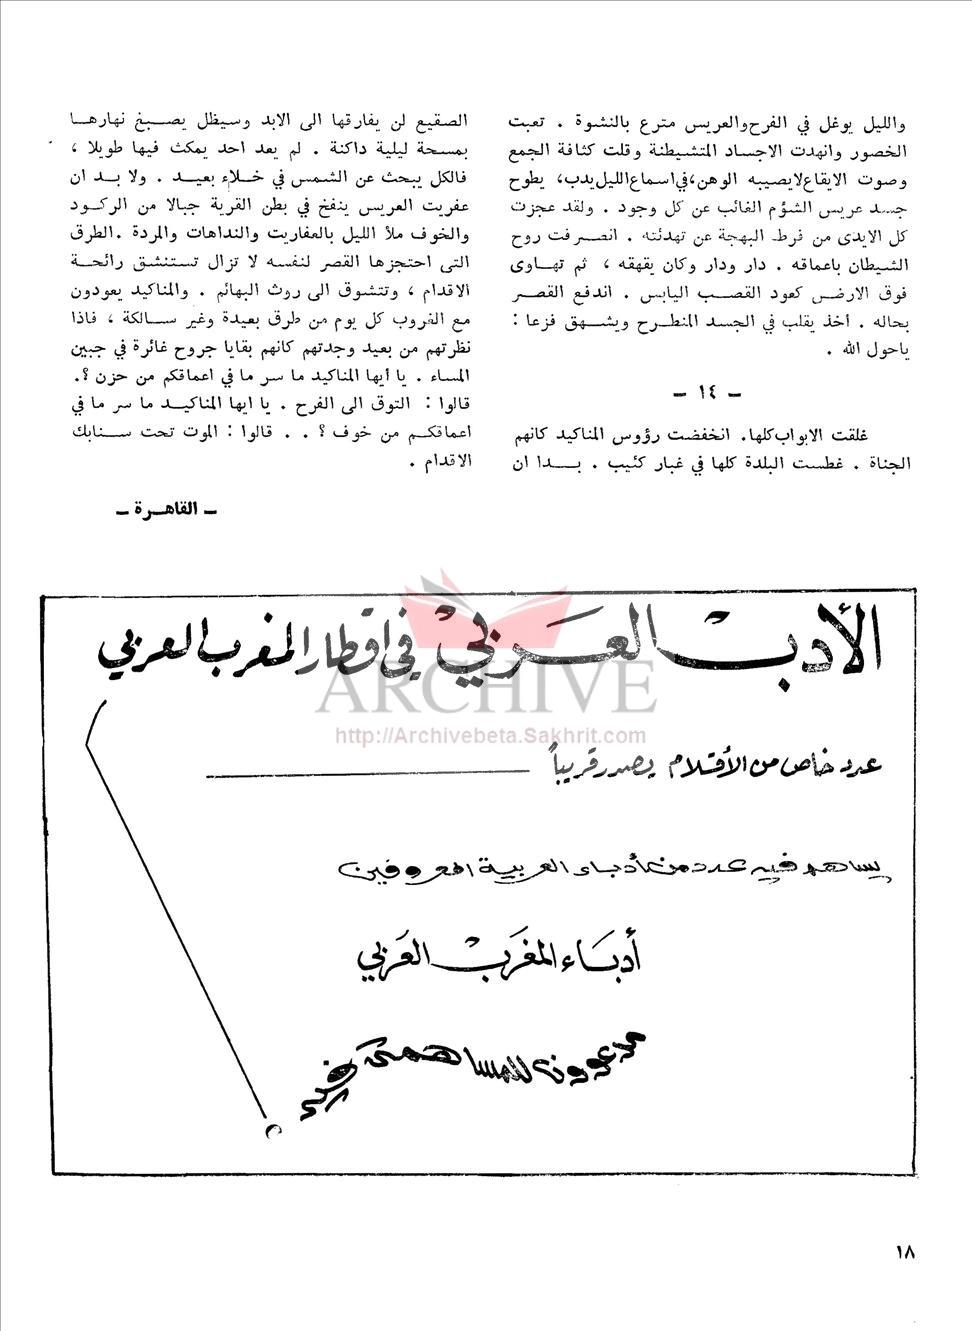 والليل يوغل في الفرح والعريس مترع بالنشوة . تعبت
الخصور وانهدت الاجساد المتشيطنة وقلت كثافة الجمع
وصوت الايقاع لايصيبه الوهن، في اسماع الليل يدب، يطوح
جسد عريس الشؤم الغائب عن كل وجود . ولقد عجزت
كل الايدى من فرط البهجة عن تهدئته . انصرفت روح
الشيطان باعماقه . دار ودار وكان يقهقه ، ثم تهاوى
فوق الارض كعود القصب اليابس . اندفع القصر
بحاله . أخذ يقلب في الجسد المنطرح ويشهق فزعا :
ياحول الله .
- ١٤ -
غلقت الابواب كلها. انخفضت رؤوس المناكيد كانهم
الجناة . غطست البلدة كلها في غبار كئيب . بدا ان
الصقيع لن يفارقها الى الابد وسيظل يصبغ نهارها
بمسحة ليلية داكنة . لم يعد احد يمكث فيها طويلا ،
فالكل يبحث عن الشمس في خلاء بعيد . ولا بد ان
عفريت العريس ينفخ في بطن القرية جبالا من الركود
والخوف ملأ الليل بالعفاريت والنداهات والمردة .الطرق
التى احتجزها القصر لنفسه لا تزال تستنشق رائحة
الاقدام ، وتتشوق الى روث البهائم . والمناكيد يعودون
مع الغروب كل يوم من طرق بعيدة وغير سالكة ، فاذا
نظرتهم من بعيد وجدتهم كانهم بقايا جروح غائرة في جبين
المساء . يا أيها المناكيد ما سر ما في اعماقكم من حزن ؟.
قالوا : التوق الى الفرح . يا ايها المناكيد ما سر ما في
اعماقكم من خوف ؟ . . قالوا : الموت تحت سنابك
الاقدام .
- القاهرة -
الأدب العربي في اقطار المغرب العربي
ARCHIVE
http://Archivebeta.Sakhrit.com
عدد خاص من الأقلام يصدر قريباً
يساهم فيه عدد من أدباء العربية المعروفين
أدباء المغرب العربي
مدعوون للمساهمة فيه
١٨